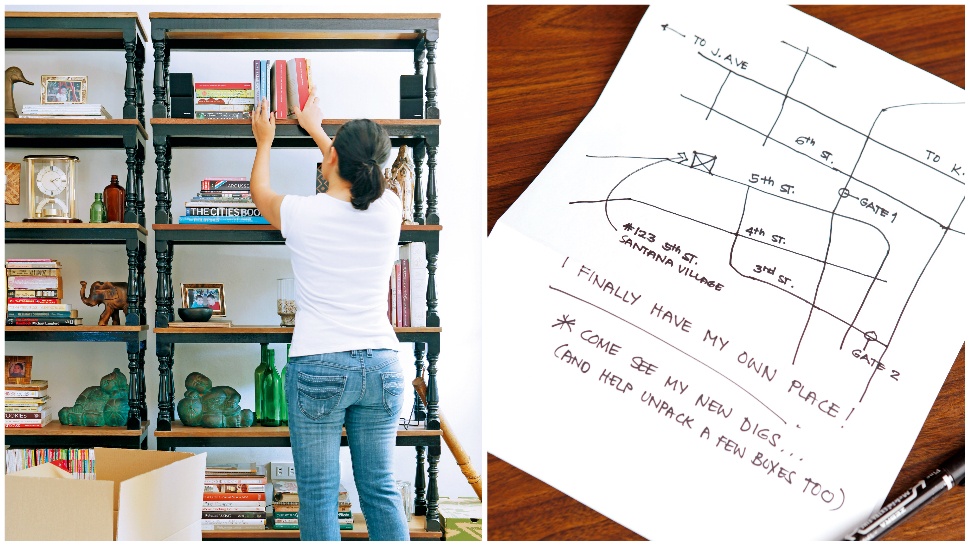 THE CITIES BOOK
TO J. AVE
TO K.
6th ST.
5th ST.
GATE 1
4th ST.
#123 5th ST.
SANTANA VILLAGE
3rd ST.
GATE 2
I FINALLY HAVE MY OWN PLACE!
* COME SEE MY NEW DIGS...
(AND HELP UNPACK A FEW BOXES TOO)